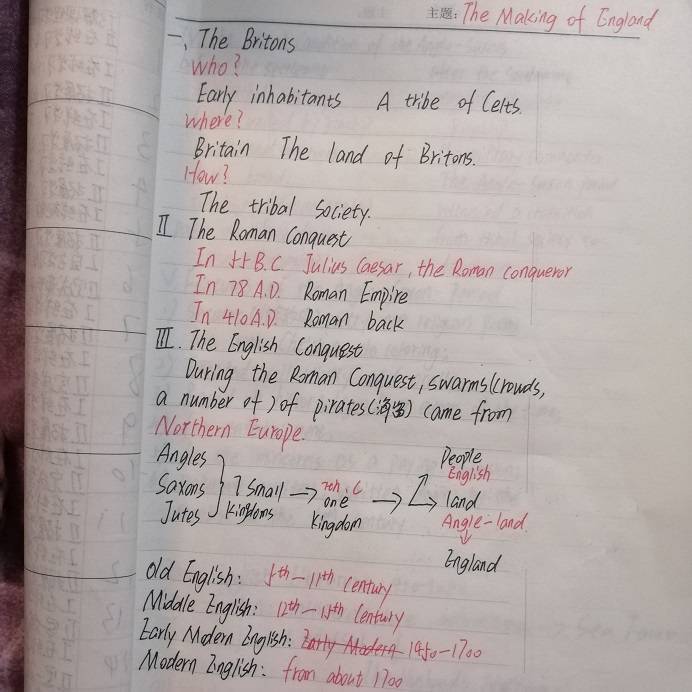 主题: The Making of England
一、The Britons
Who?
Early inhabitants A tribe of Celts.
Where?
Britain The land of Britons.
How?
The tribal Society.
II The Roman Conquest
In 55 B.C. Julius Caesar, the Roman conqueror
In 78 A.D. Roman Empire
In 410 A.D. Roman back
III. The English Conquest
During the Roman Conquest, swarms (crowds,
a number of) of pirates (海盗) came from
Northern Europe.
Angles
Saxons
Jutes
7 small
kingdoms
7th. C
one
kingdom
People
English
land
Angle-land
England
Old English: 5th - 11th Century
Middle English: 12th - 15th Century
Early Modern English: Early Modern 1450-1700
Modern English: from about 1700